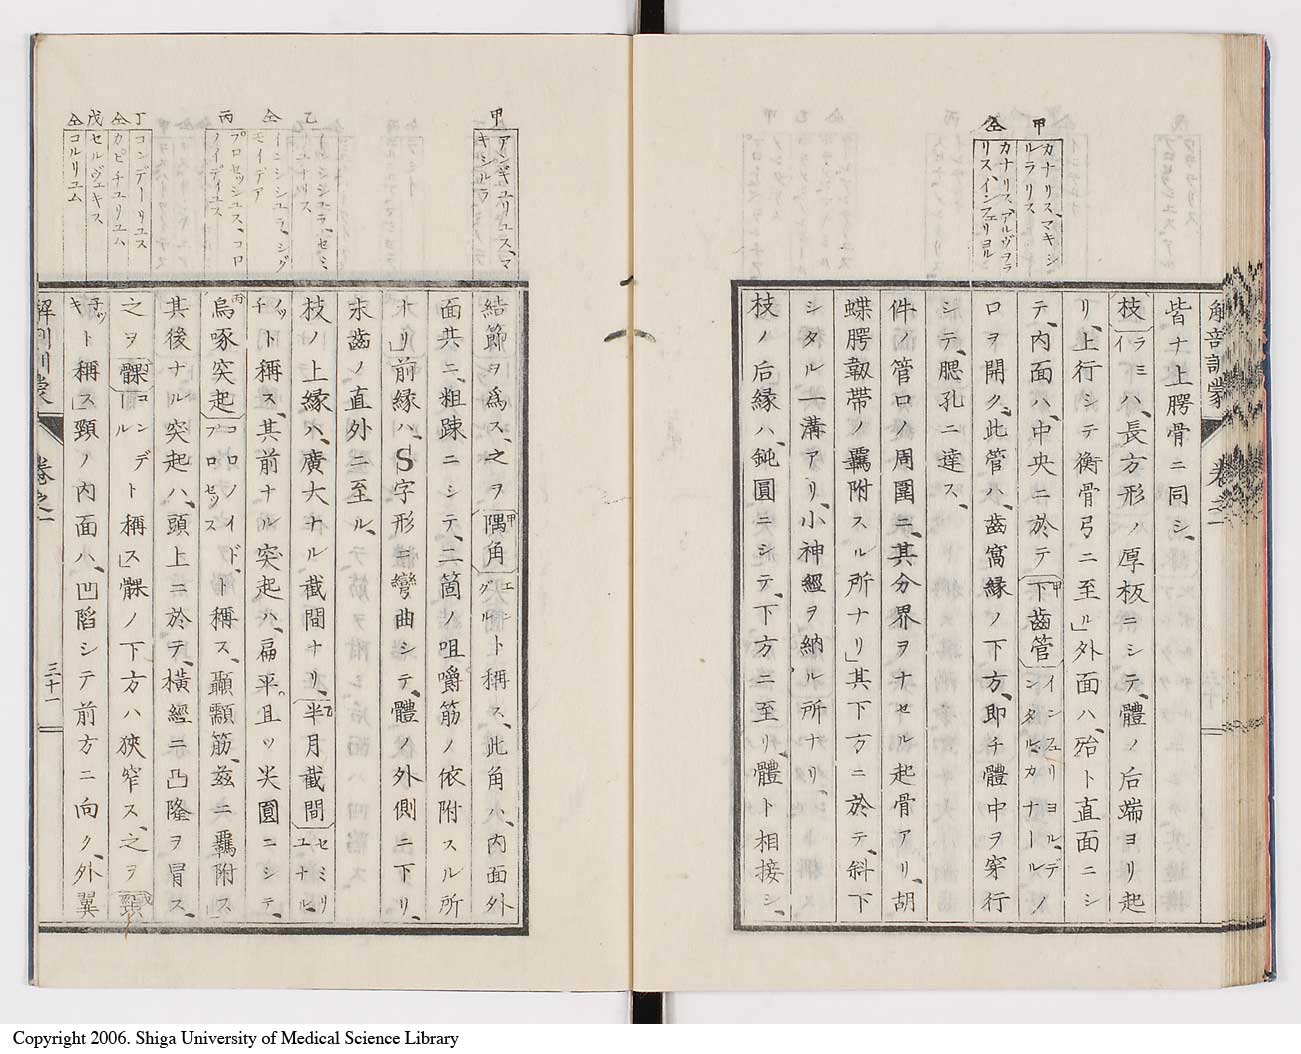 甲
カナリス、マキシ
ルラリス
仝
カナリス、アルヴヲラ
リス、インフェリヨル
解剖訓蒙 卷之一
皆ナ上腭骨ニ同シ、
枝ライミハ、長方形ノ厚板ニシテ、體ノ后端ヨリ起
リ、上行シテ衡骨弓ニ至ル」外面ハ、殆ト直面ニシ
テ、内面ハ、中央ニ於テ下齒管甲インフェリヨル、デンタル、カナールノ
口ヲ開ク、此管ハ、齒窩緣ノ下方、即チ體中ヲ穿行
シテ、腮孔ニ達ス、
件ノ管口ノ周圍ニ、其分界ヲナセル起骨アリ、胡
蝶腭靱帶ノ羈附スル所ナリ」其下方ニ於テ、斜下
シタル一溝アリ、小神經ヲ納ル所ナリ、
枝ノ后緣ハ、鈍圓ニシテ、下方ニ至リ、體ト相接シ、
甲
アンギュリュス、マ
キシルラ
乙
インシシュラ、セミ
リュナリス
仝
インシシュラ、シグ
モイデア
丙
プロセッシュス、コロ
ノイディュス
丁
コンデーリュス
仝
カピチュリュム
戊
セルヴェキス
仝
コルリュム
結節ヲ爲ス、之ヲ隅角甲エングルト稱ス、此角ハ、内面外
面共ニ、粗踈ニシテ、二箇ノ咀嚼筋ノ依附スル所
ナリ」前緣ハ、S字形ニ彎曲シテ、體ノ外側ニ下リ、
末齒ノ直外ニ至ル、
枝ノ上緣ハ、廣大ナル截間ナリ、半月截間乙セミリュナル、
チット稱ス、其前ナル突起ハ、扁平且ツ尖圓ニシテ、
烏啄突起丙コロノイド、プロセッスト稱ス、顳顬筋、茲ニ羈附ス」
其後ナル突起ハ、頭上ニ於テ、橫經ニ凸隆ヲ冒ス、
之ヲ髁コンデルト稱ス」髁ノ下方ハ狹窄ス、之ヲ頸戊
子ッキト稱ス」頸ノ内面ハ、凹陷シテ前方ニ向ク、外翼
解剖訓蒙 卷之一 三十一
Copyright 2006. Shiga University of Medical Science Library